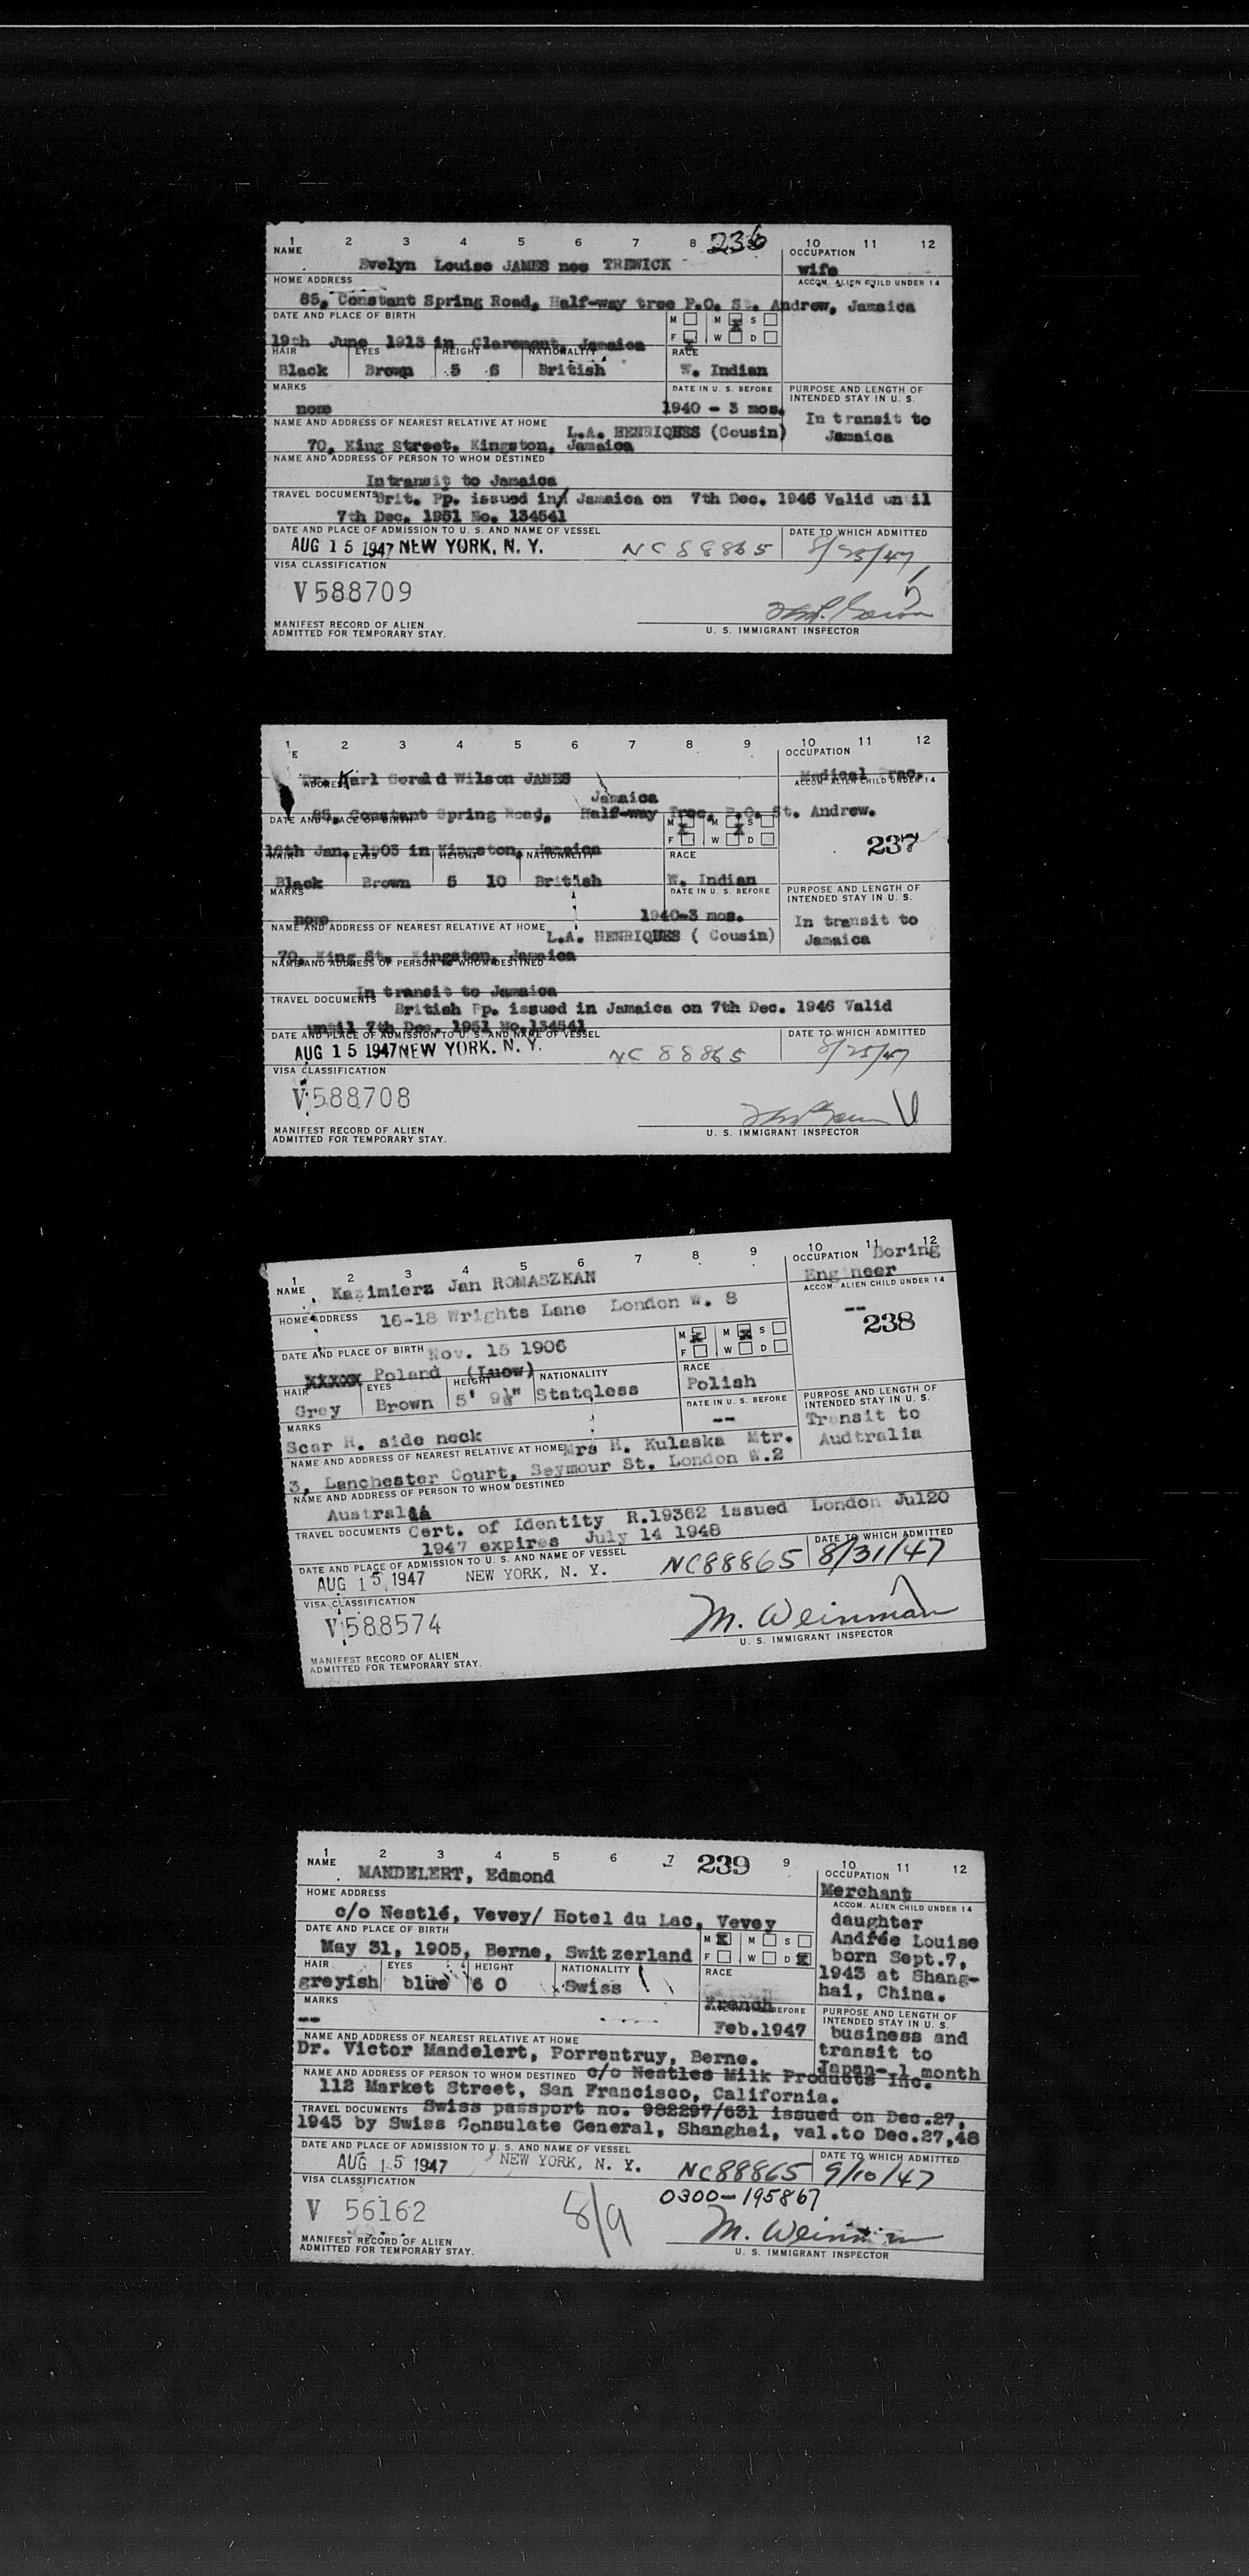 1 2 3 4 5 6 7 8 236 10 11 12
NAME OCCUPATION
Evelyn Louise JAMES nee TREWICK wife
HOME ADDRESS ACCOM. ALIEN CHILD UNDER 14
85, Constant Spring Road, Half-way tree P.O. St. Andrew, Jamaica
DATE AND PLACE OF BIRTH M M X S
19th June 1913 in Claremont, Jamaica F X W D
HAIR EYES HEIGHT NATIONALITY RACE
Black Brown 5 6 British W. Indian
MARKS DATE IN U. S. BEFORE PURPOSE AND LENGTH OF INTENDED STAY IN U. S.
none 1940 - 3 mos. In transit to
NAME AND ADDRESS OF NEAREST RELATIVE AT HOME L.A. HENRIQUES (Cousin) Jamaica
70, King Street, Kingston, Jamaica
NAME AND ADDRESS OF PERSON TO WHOM DESTINED
Intransit to Jamaica
TRAVEL DOCUMENTS Brit. Pp. issued in Jamaica on 7th Dec. 1946 Valid until
7th Dec. 1951 No. 134541
DATE AND PLACE OF ADMISSION TO U. S. AND NAME OF VESSEL DATE TO WHICH ADMITTED
AUG 15 1947 NEW YORK, N. Y. NC 88865 8/25/47
VISA CLASSIFICATION
V 588709
MANIFEST RECORD OF ALIEN
ADMITTED FOR TEMPORARY STAY. U. S. IMMIGRANT INSPECTOR
1 2 3 4 5 6 7 8 9 10 11 12
E OCCUPATION
Dr. Karl Gerald Wilson JAMES Medical Prac.
ADDRESS ACCOM. ALIEN CHILD UNDER 14
Jamaica
85, Constant Spring Road, Half-way Tree, P.O. St. Andrew.
DATE AND PLACE OF BIRTH M X M X S
F W D 237
Jan. 1903 in Kingston, Jamaica
HAIR EYES HEIGHT NATIONALITY RACE
Black Brown 5 10 British W. Indian
MARKS DATE IN U. S. BEFORE PURPOSE AND LENGTH OF INTENDED STAY IN U. S.
none 1940-3 mos. In transit to
NAME AND ADDRESS OF NEAREST RELATIVE AT HOME L.A. HENRIQUES ( Cousin) Jamaica
70, King St. Kingston, Jamaica
NAME AND ADDRESS OF PERSON TO WHOM DESTINED
In transit to Jamaica
TRAVEL DOCUMENTS British Pp. issued in Jamaica on 7th Dec. 1946 Valid
until 7th Dec. 1951 No.134541
DATE AND PLACE OF ADMISSION TO U. S. AND NAME OF VESSEL DATE TO WHICH ADMITTED
AUG 15 1947 NEW YORK, N. Y. NC 88865 8/25/47
VISA CLASSIFICATION
V 588708
MANIFEST RECORD OF ALIEN
ADMITTED FOR TEMPORARY STAY. U. S. IMMIGRANT INSPECTOR
1 2 3 4 5 6 7 8 9 10 11 12
NAME Kazimierz Jan ROMASZKAN OCCUPATION Boring
Engineer
HOME ADDRESS 16-18 Wrights Lane London W. 8 ACCOM. ALIEN CHILD UNDER 14
-- 238
DATE AND PLACE OF BIRTH Nov. 15 1906 M X M X S
xxxxx Poland (Luow) F W D
HAIR EYES HEIGHT NATIONALITY RACE
Grey Brown 5' 9½" Stateless Polish
MARKS DATE IN U. S. BEFORE PURPOSE AND LENGTH OF INTENDED STAY IN U. S.
Scar R. side neck -- Transit to
NAME AND ADDRESS OF NEAREST RELATIVE AT HOME Mrs H. Kulaska Mtr. Audtralia
3, Lanchester Court, Seymour St. London W.2
NAME AND ADDRESS OF PERSON TO WHOM DESTINED
Australia
TRAVEL DOCUMENTS Cert. of Identity R.19362 issued London Jul20
1947 expires July 14 1948
DATE AND PLACE OF ADMISSION TO U. S. AND NAME OF VESSEL DATE TO WHICH ADMITTED
AUG 15 1947 NEW YORK, N. Y. NC88865 8/31/47
VISA CLASSIFICATION
V 588574 M. Weinman
MANIFEST RECORD OF ALIEN
ADMITTED FOR TEMPORARY STAY. U. S. IMMIGRANT INSPECTOR
1 2 3 4 5 6 7 239 9 10 11 12
NAME MANDELERT, Edmond OCCUPATION
HOME ADDRESS Merchant
c/o Nestlé, Vevey/ Hotel du Lac, Vevey ACCOM. ALIEN CHILD UNDER 14
DATE AND PLACE OF BIRTH M X M S daughter
May 31, 1905, Berne, Switzerland F W D X Andrée Louise
HAIR EYES HEIGHT NATIONALITY RACE born Sept.7,
greyish blue 6 0 Swiss French 1943 at Shang-
hai, China.
MARKS DATE IN U. S. BEFORE PURPOSE AND LENGTH OF INTENDED STAY IN U. S.
-- Feb.1947 business and
NAME AND ADDRESS OF NEAREST RELATIVE AT HOME transit to
Dr. Victor Mandelert, Porrentruy, Berne. Japan- 1 month
NAME AND ADDRESS OF PERSON TO WHOM DESTINED c/o Nestles Milk Products Inc.
112 Market Street, San Francisco, California.
TRAVEL DOCUMENTS Swiss passport no. 982297/631 issued on Dec.27,
1945 by Swiss Consulate General, Shanghai, val.to Dec.27,48
DATE AND PLACE OF ADMISSION TO U. S. AND NAME OF VESSEL DATE TO WHICH ADMITTED
AUG 15 1947 NEW YORK, N. Y. NC88865 9/10/47
VISA CLASSIFICATION 0300-195867
V 56162 8/9 M. Weinman
MANIFEST RECORD OF ALIEN
ADMITTED FOR TEMPORARY STAY. U. S. IMMIGRANT INSPECTOR